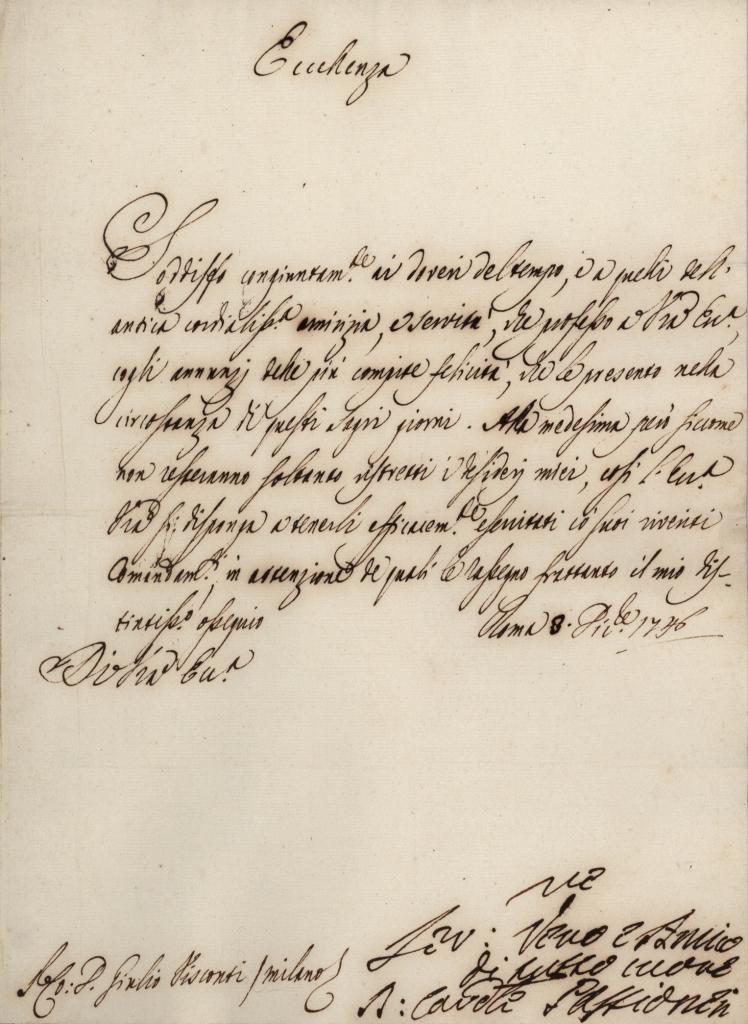 Eccellenza
Soddisfo congiuntam.te ai doveri del tempo, e a quelli dell'
antica cordialiss.a amicizia, e servitù, che professo a V'ra Ecc.a,
cogli annunzj delle più compite felicità, che le presento nella
circostanza di questi Sagri giorni. Alla medesima però siccome
non resteranno soltanto ristretti i desiderj miei, così l'Ecc.a
V'ra si disponga a tenerli efficacem.te esercitati co' suoi riveriti
Comandam.ti, in attenzione de' quali le rassegno frattanto il mio dis-
tintiss.o ossequio
Roma 8. Dic.bre 1746
Di V'ra Ecc.a
Ser: Vero e Amico
di tutto cuore
Passionei
D. Giulio Visconti (Milano)